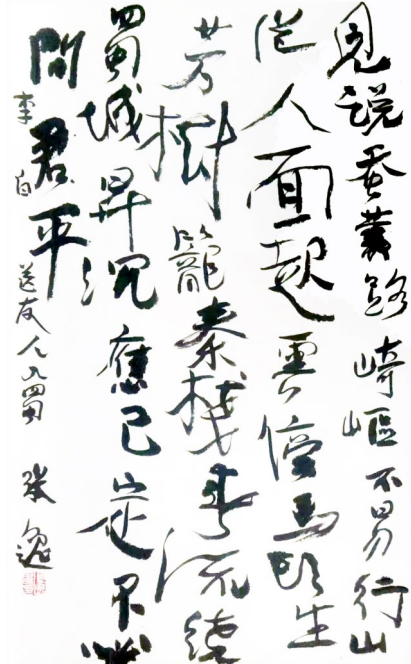 見説蚕叢路崎嶇不易行山
從人面起雲傍馬頭生
芳樹籠秦棧春流繞
蜀城昇沉應已定不必
問君平
李白送友人入蜀 張逸